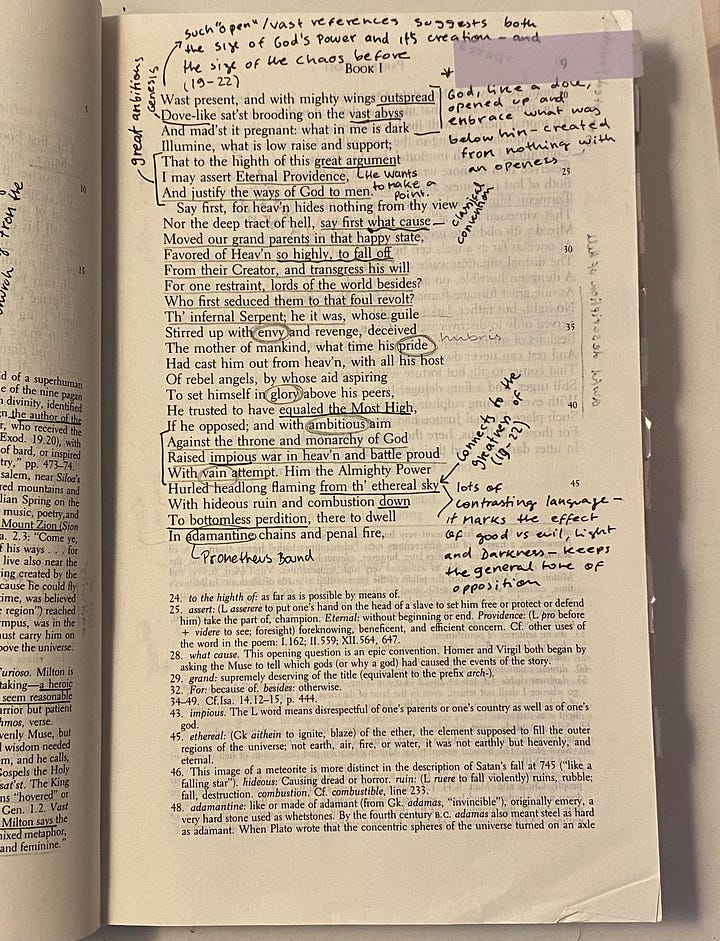 such "open"/vast references suggests both
the size of God's Power and its creation – and
the size of the chaos before
(19-22)
BOOK I
9
genesis
great ambitions
Wast present, and with mighty wings outspread
Dove-like sat'st brooding on the vast abyss
And mad'st it pregnant: what in me is dark
Illumine, what is low raise and support;
That to the highth of this great argument
I may assert Eternal Providence,
And justify the ways of God to men.
Say first, for heav'n hides nothing from thy view
Nor the deep tract of hell, say first what cause
Moved our grand parents in that happy state,
Favored of Heav'n so highly, to fall off
From their Creator, and transgress his will
For one restraint, lords of the world besides?
Who first seduced them to that foul revolt?
Th' infernal Serpent; he it was, whose guile
Stirred up with envy and revenge, deceived
The mother of mankind, what time his pride
Had cast him out from heav'n, with all his host
Of rebel angels, by whose aid aspiring
To set himself in glory above his peers,
He trusted to have equaled the Most High,
If he opposed; and with ambitious aim
Against the throne and monarchy of God
Raised impious war in heav'n and battle proud
With vain attempt. Him the Almighty Power
Hurled headlong flaming from th' ethereal sky
With hideous ruin and combustion down
To bottomless perdition, there to dwell
In adamantine chains and penal fire,
Prometheus Bound
God, like a dove,
opened up and
embrace what was
below him – created
from nothing with
an openess
He wants
to make a
point.
classical
convention
hubris
connects to the
greatness of
(19-22)
lots of
contrasting language –
it marks the effect
of good vs evil, light
and Darkness – keeps
the general tone of
opposition
25
30
35
40
45
24. to the highth of: as far as is possible by means of.
25. assert: (L asserere to put one's hand on the head of a slave to set him free or protect or defend
him) take the part of, champion. Eternal: without beginning or end. Providence: (L pro before
+ videre to see; foresight) foreknowing, beneficent, and efficient concern. Cf. other uses of
the word in the poem: I.162; II.559; XII.564, 647.
28. what cause. This opening question is an epic convention. Homer and Virgil both began by
asking the Muse to tell which gods (or why a god) had caused the events of the story.
29. grand: supremely deserving of the title (equivalent to the prefix arch-).
32. For: because of. besides: otherwise.
34–49. Cf. Isa. 14.12–15, p. 444.
43. impious. The L word means disrespectful of one's parents or one's country as well as of one's
god.
45. ethereal: (Gk aithein to ignite, blaze) of the ether, the element supposed to fill the outer
regions of the universe; not earth, air, fire, or water, it was not earthly but heavenly, and
eternal.
46. This image of a meteorite is more distinct in the description of Satan's fall at 745 ("like a
falling star"). hideous: Causing dread or horror. ruin: (L ruere to fall violently) ruins, rubble;
fall, destruction. combustion. Cf. combustible, line 233.
48. adamantine: like or made of adamant (from Gk. adamas, "invincible"), originally emery, a
very hard stone used as whetstones. By the fourth century B.C. adamas also meant steel as hard
as adamant. When Plato wrote that the concentric spheres of the universe turned on an axle
5
10
15
d of a superhuman
e of the nine pagan
n divinity, identified
n the author of the
r, who received the
Exod. 19.20), with
of bard, or inspired
try," pp. 473–74.
salem, near Siloa's
red mountains and
lian Spring on the
music, poetry, and
Mount Zion (Sion
a. 2.3: "Come ye,
f his ways . . . for
live also near the
ing created by the
cause he could fly
time, was believed
e region") reached
mpus, was in the
ust carry him on
bove the universe.
urioso. Milton is
taking—a heroic
seem reasonable
arrior but patient
hmos, verse.
venly Muse, but
d wisdom needed
em, and he calls,
Gospels the Holy
sat'st. The King
ns "hovered" or
Gen. 1.2. Vast
Milton says the
nixed metaphor,
and feminine."